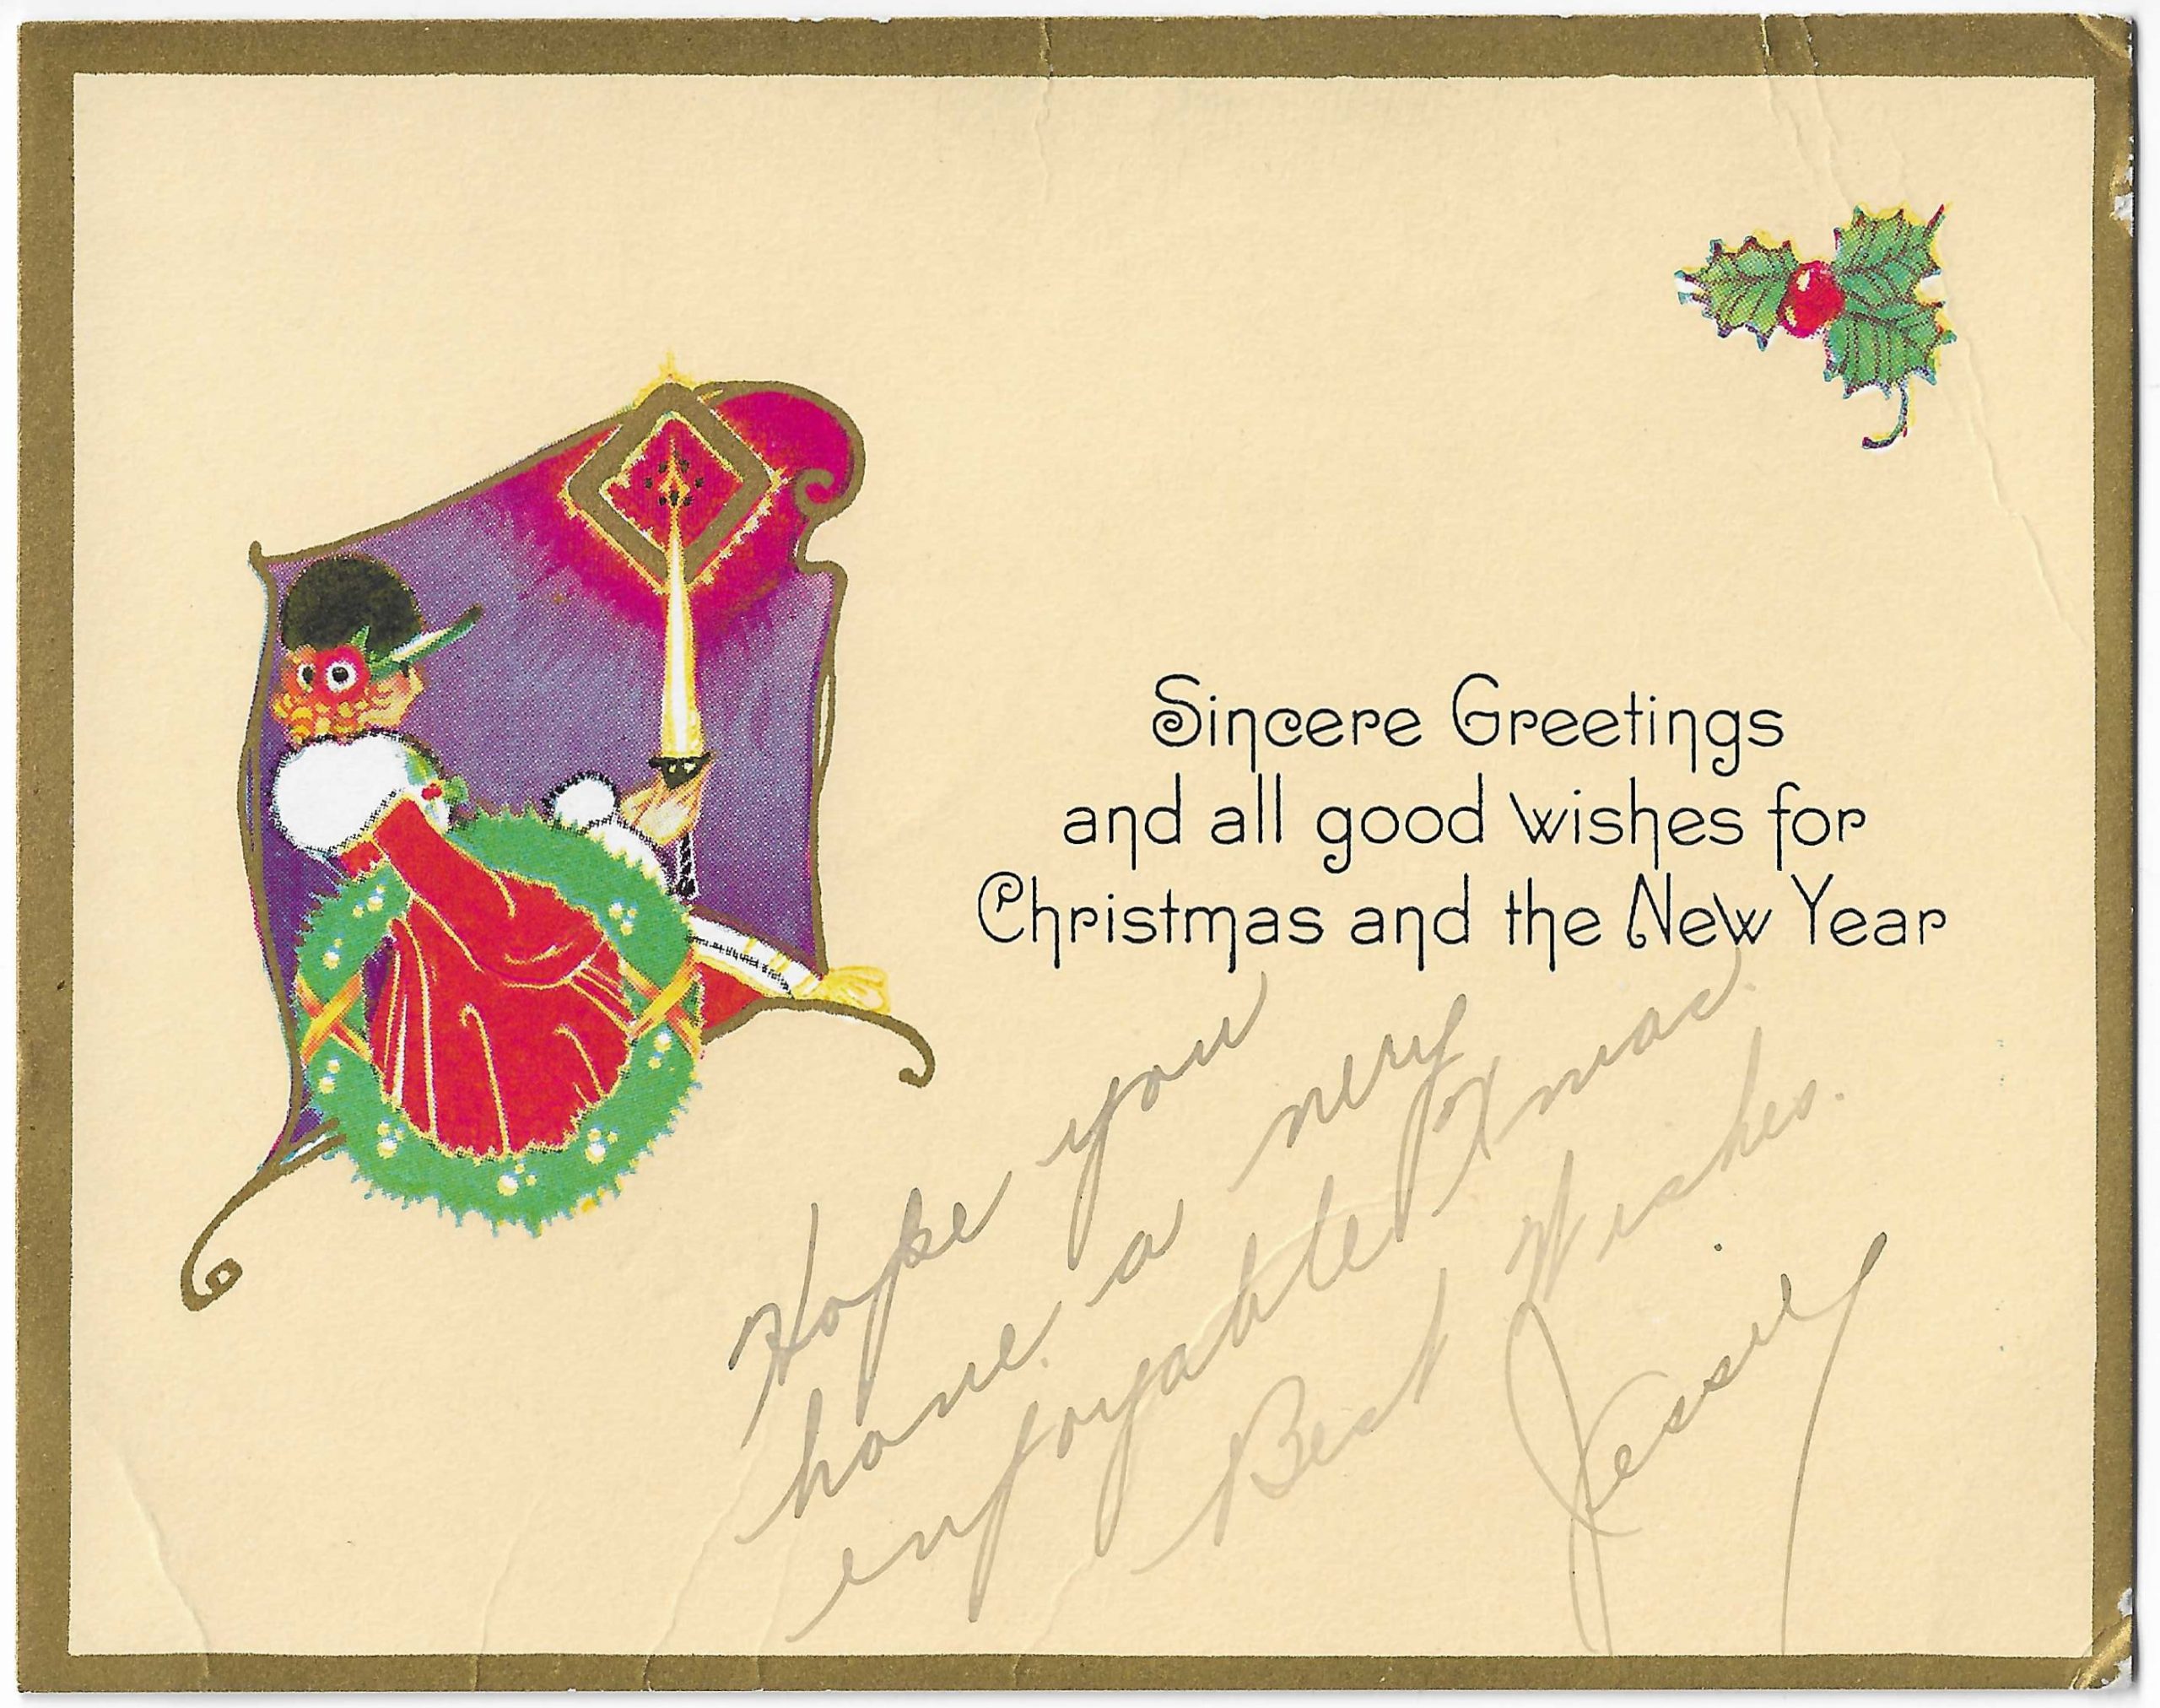 Sincere Greetings
and all good wishes for
Christmas and the New Year
Hope you
have a very
enjoyable Xmas.
Best Wishes.
Jessie